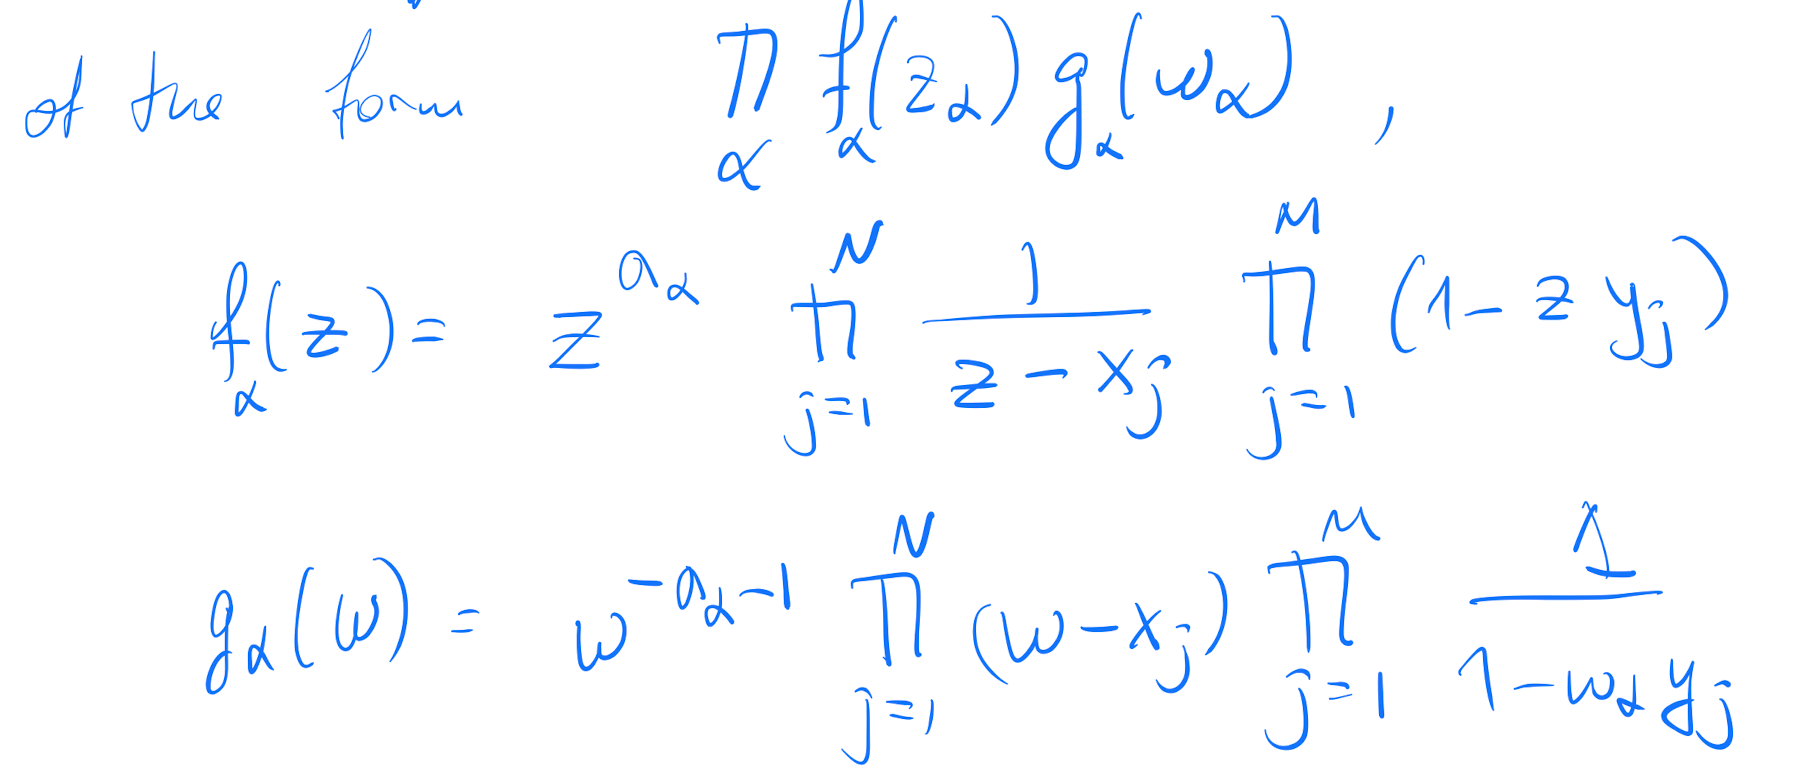 of the form $\prod_{\alpha} f_{\alpha}(z_{\alpha}) g_{\alpha}(w_{\alpha})$ ,
$f_{\alpha}(z) = z^{a_{\alpha}} \prod_{j=1}^{N} \frac{1}{z - x_j} \prod_{j=1}^{M} (1 - z y_j)$
$g_{\alpha}(w) = w^{-a_{\alpha}-1} \prod_{j=1}^{N} (w - x_j) \prod_{j=1}^{M} \frac{1}{1 - w_{\alpha} y_j}$